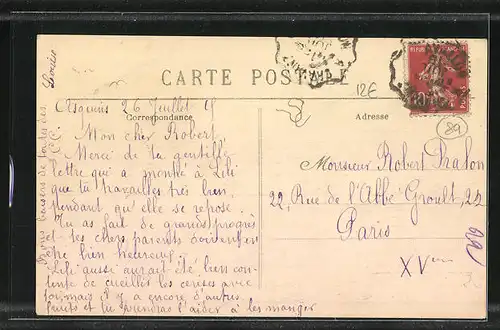 CARTE POSTALE
Correspondance
Adresse
12€
89
26 Juillet
Mon cher Robert,
Merci de ta gentille
lettre qui a montré à Lili
que tu travailles très bien
pendant qu'elle se repose.
Tu as fait de grands progrès
et tes chers parents doivent en
être bien heureux.
Lili aussi aurait été bien con-
tente de cueillir les cerises avec
toi mais il y a encore d'autres
fruits et tu viendras l'aider à les manger
Monsieur Robert
22, Rue de l'Abbé Groult, 22
Paris
XV